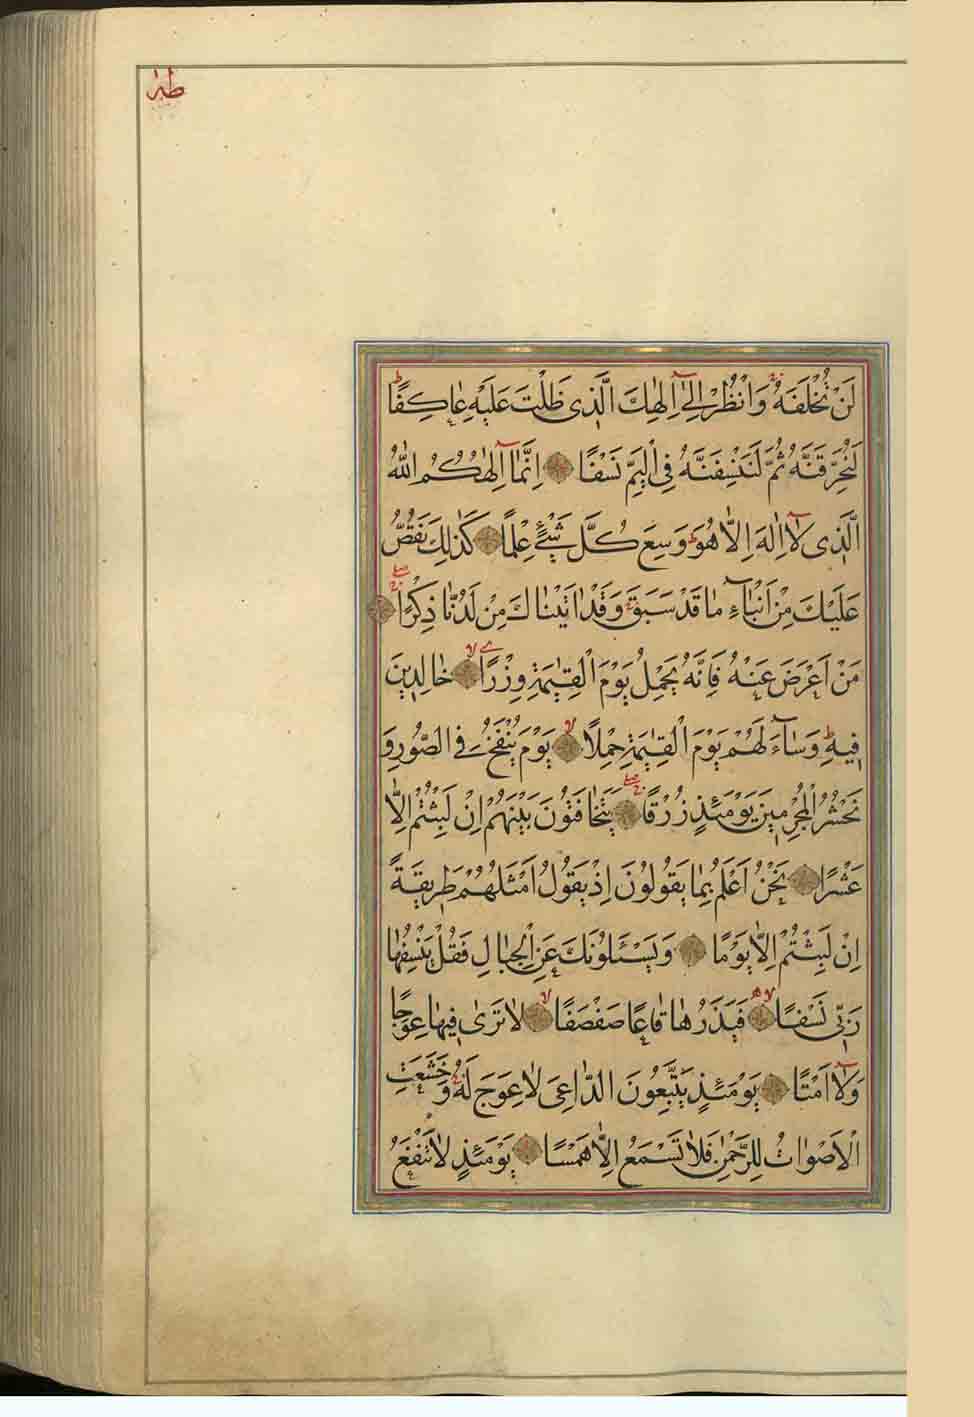 طه
لَنْ تُخْلَفَهُ وَانْظُرْ اِلٰٓى اِلٰهِكَ الَّذٖى ظَلْتَ عَلَيْهِ عَاكِفًا
لَنُحَرِّقَنَّهُ ثُمَّ لَنَنْسِفَنَّهُ فِى الْيَمِّ نَسْفًا اِنَّمَٓا اِلٰهُكُمُ اللّٰهُ
الَّذٖى لَٓا اِلٰهَ اِلَّا هُوَ وَسِعَ كُلَّ شَیْءٍ عِلْمًا كَذٰلِكَ نَقُصُّ
عَلَيْكَ مِنْ اَنْبَٓاءِ مَا قَدْ سَبَقَ وَقَدْ اٰتَيْنَاكَ مِنْ لَدُنَّا ذِكْرًا
مَنْ اَعْرَضَ عَنْهُ فَاِنَّهُ يَحْمِلُ يَوْمَ الْقِيٰمَةِ وِزْرًا خَالِدٖينَ
فٖيهِ وَسَٓاءَ لَهُمْ يَوْمَ الْقِيٰمَةِ حِمْلًا يَوْمَ يُنْفَخُ فِى الصُّورِ وَ
نَحْشُرُ الْمُجْرِمٖينَ يَوْمَئِذٍ زُرْقًا يَتَخَافَتُونَ بَيْنَهُمْ اِنْ لَبِثْتُمْ اِلَّا
عَشْرًا نَحْنُ اَعْلَمُ بِمَا يَقُولُونَ اِذْ يَقُولُ اَمْثَلُهُمْ طَرٖيقَةً
اِنْ لَبِثْتُمْ اِلَّا يَوْمًا وَيَسْـَٔلُونَكَ عَنِ الْجِبَالِ فَقُلْ يَنْسِفُهَا
رَبّٖى نَسْفًا فَيَذَرُهَا قَاعًا صَفْصَفًا لَا تَرٰى فٖيهَا عِوَجًا
وَلَٓا اَمْتًا يَوْمَئِذٍ يَتَّبِعُونَ الدَّاعِىَ لَا عِوَجَ لَهُ وَخَشَعَتِ
الْاَصْوَاتُ لِلرَّحْمٰنِ فَلَا تَسْمَعُ اِلَّا هَمْسًا يَوْمَئِذٍ لَا تَنْفَعُ